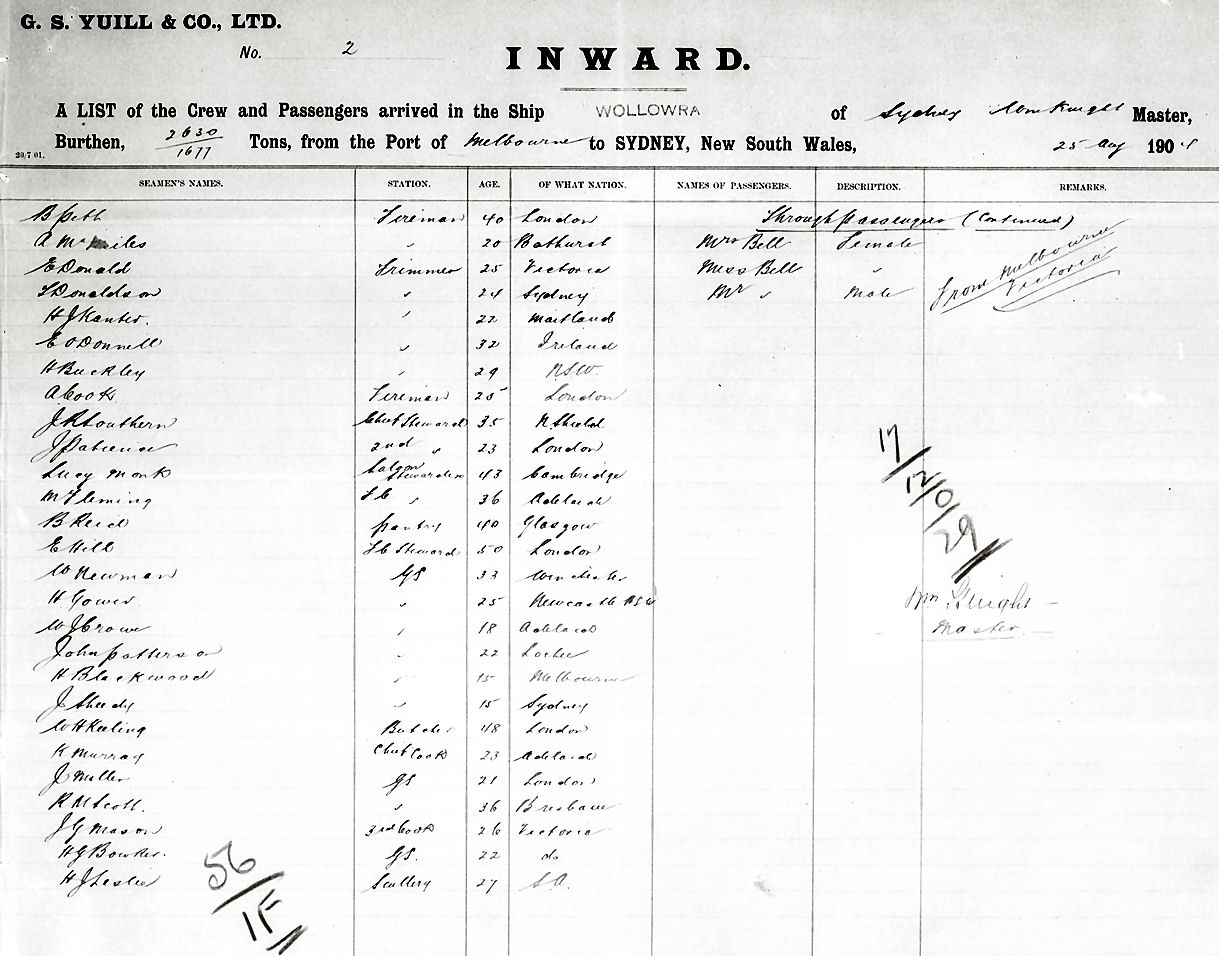 G. S. YUILL & CO., LTD.
No. 2
INWARD.
A LIST of the Crew and Passengers arrived in the Ship WOLLOWRA of Sydney Wm Knight Master,
Burthen, 2630/1677 Tons, from the Port of Melbourne to SYDNEY, New South Wales, 25 Aug 1904
20/7 01.
SEAMEN'S NAMES. STATION. AGE. OF WHAT NATION. NAMES OF PASSENGERS. DESCRIPTION. REMARKS.
B Peth Fireman 40 London Through passengers (Continued)
A 〃 20 Bathurst Mrs Bell Female
E Donald Trimmer 25 Victoria Miss Bell 〃 from Melbourne
S Donaldson 〃 24 Sydney Mr 〃 Male Victoria
H J Kanter. 〃 22 Maitland
E O Donnell 〃 32 Ireland
H Buckley 〃 29 NSW
A Cook Fireman 25 London
J R Southern Chief Steward 35 N Shield
J Patience 2nd 〃 23 London
Lucy Monk Saloon Stewardess 43 Cambridge
M Fleming F C 〃 36 Adelaide
B Reid pantry 40 Glasgow
E Hill F C Steward 50 London
W Newman GS 33 Winchester
H Gower. 〃 25 Newcastle NSW
W J Crowe 〃 18 Adelaide
John Patterson 〃 22 Lochee
H Blackwood 〃 15 Melbourne
J Sheedy 〃 15 Sydney
W H Keeling Butcher 48 London
K Murray Chief Cook 23 Adelaide
J Miller GS 21 London
R M Scott. 〃 36 Brisbane
J G Mason 3rd Cook 26 Victoria
H G Bowker. GS. 22 do
H J Leslie Scullery 27 S.A.
17/12/0/29
Wm Knight
Master
56/1F